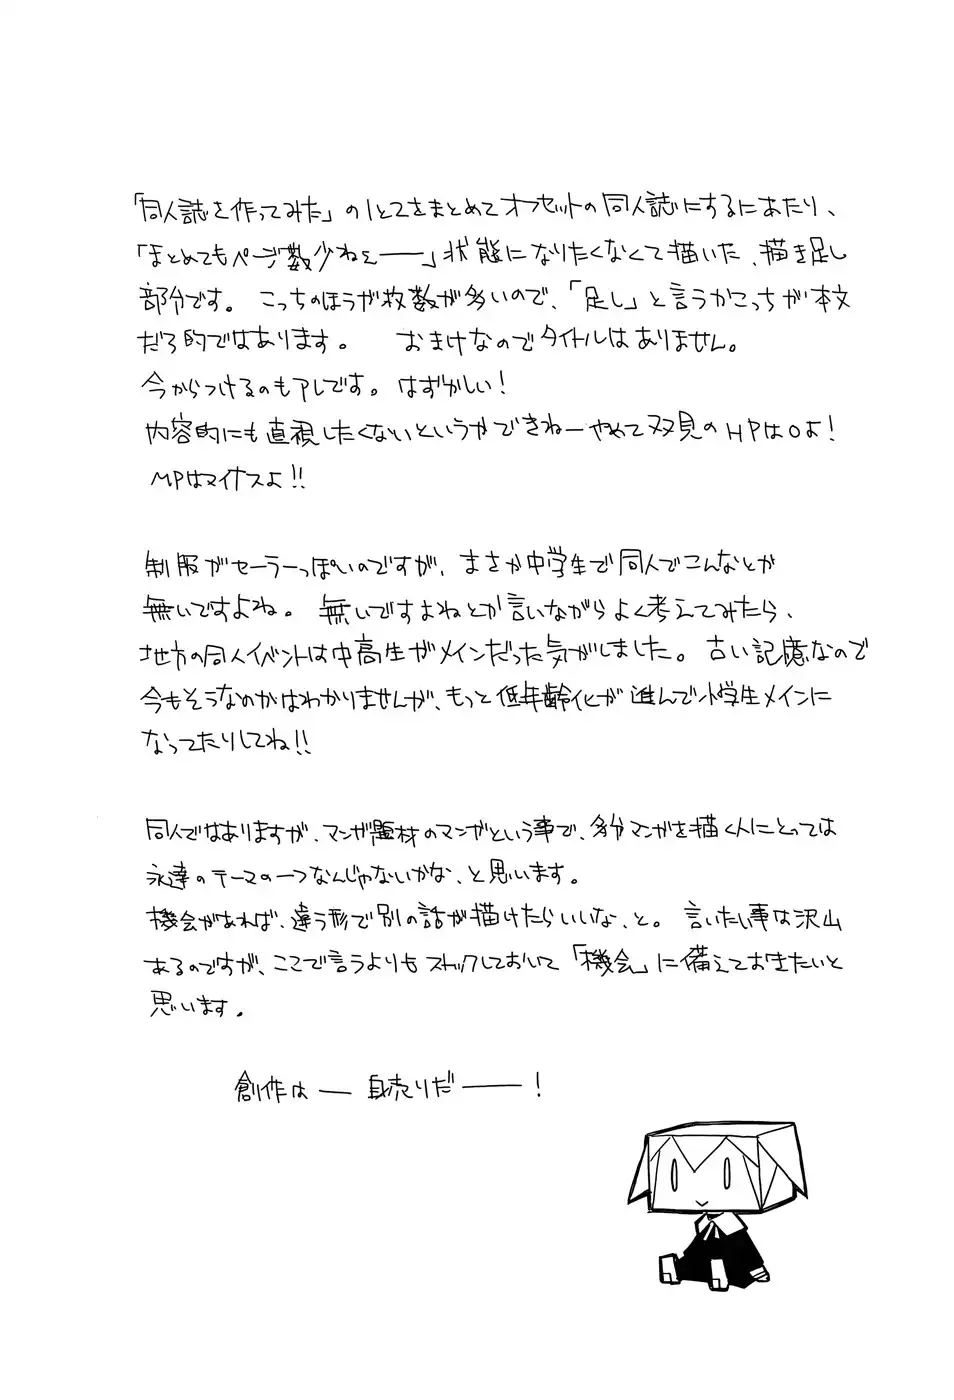 「同人誌を作ってみた」の1と2をまとめてオフセットの同人誌にするにあたり、
「まとめてもページ数少ねぇ――」状態になりたくなくて描いた、描き足し
部分です。 こっちのほうが枚数が多いので、「足し」と言うかこっちが本文
だろ的ではあります。 おまけなのでタイトルはありません。
今からつけるのもアレです。はずかしい！
内容的にも直視したくないというかできねーやめて双見のHPは0よ！
MPはマイナスよ!!
制服がセーラーっぽいのですが、まさか中学生で同人でこんなとか
無いですよね。 無いですよねとか言いながらよく考えてみたら、
地方の同人イベントは中高生がメインだった気がしました。古い記憶なので
今もそうなのかはわかりませんが、もっと低年齢化が進んで小学生メインに
なってたりしてね!!
同人ではありますが、マンガ題材のマンガという事で、多分マンガを描く人にとっては
永遠のテーマの一つなんじゃないかな、と思います。
機会があれば、違う形で別の話が描けたらいいな、と。 言いたい事は沢山
あるのですが、ここで言うよりもストックしておいて「機会」に備えておきたいと
思います。
創作は― 自売りだ――！